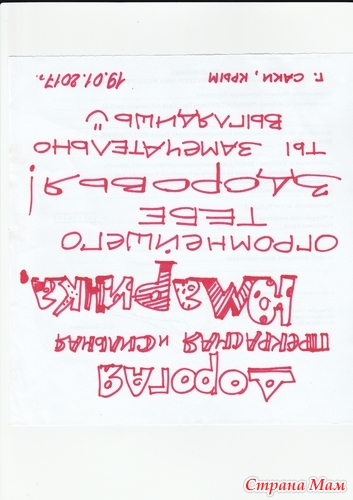 ДОРОГАЯ
ПРЕКРАСНАЯ И СИЛЬНАЯ
ЮМАРИНКА,
ОГРОМНЕЙШЕГО
ТЕБЕ
ЗДОРОВЬЯ!
ТЫ ЗАМЕЧАТЕЛЬНО
ВЫГЛЯДИШЬ
г. САКИ, КРЫМ 19.01.2017г.
Страна Мам